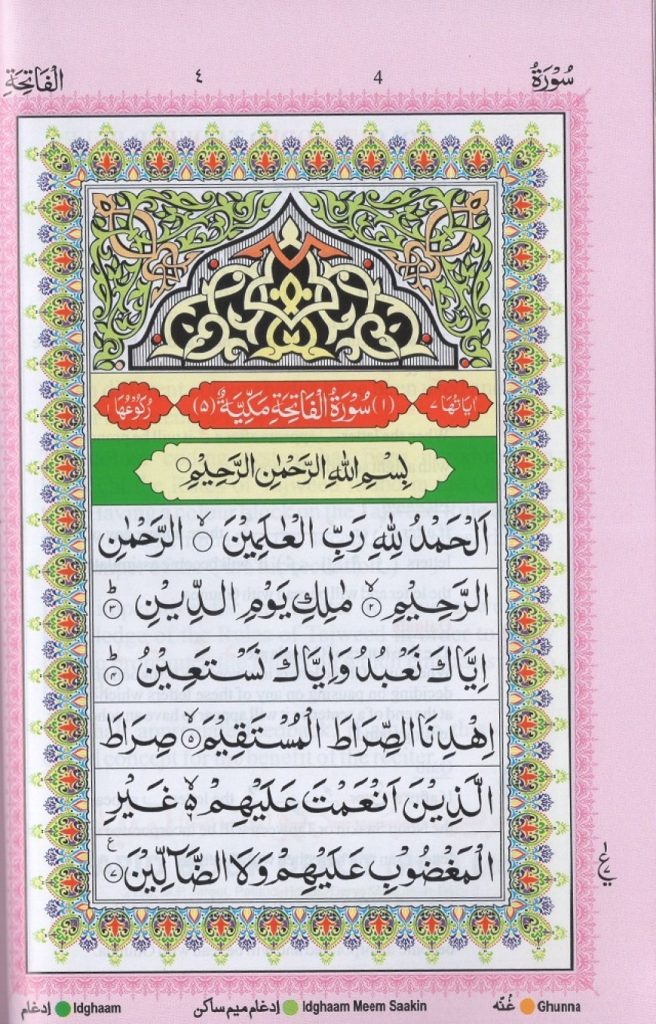 سُوْرَةُ 4 ٤ الْفَاتِحَةِ
اٰيَاتُهَا ٧ (١) سُوْرَةُ الْفَاتِحَةِ مَكِّيَّةٌ (٥) رُكُوْعُهَا ١
بِسْمِ اللّٰهِ الرَّحْمٰنِ الرَّحِيْمِ
اَلْحَمْدُ لِلّٰهِ رَبِّ الْعٰلَمِيْنَ ۙ الرَّحْمٰنِ
الرَّحِيْمِ ۙ ٢ مٰلِكِ يَوْمِ الدِّيْنِ ؕ ٣
اِيَّاكَ نَعْبُدُ وَاِيَّاكَ نَسْتَعِيْنُ ؕ ٤
اِهْدِنَا الصِّرَاطَ الْمُسْتَقِيْمَ ۙ ٥ صِرَاطَ
الَّذِيْنَ اَنْعَمْتَ عَلَيْهِمْ ۙ ٦ غَيْرِ
الْمَغْضُوْبِ عَلَيْهِمْ وَلَا الضَّآلِّيْنَ ع ٧
إدغام Idghaam إدغام ميم ساكن Idghaam Meem Saakin غُنّه Ghunna